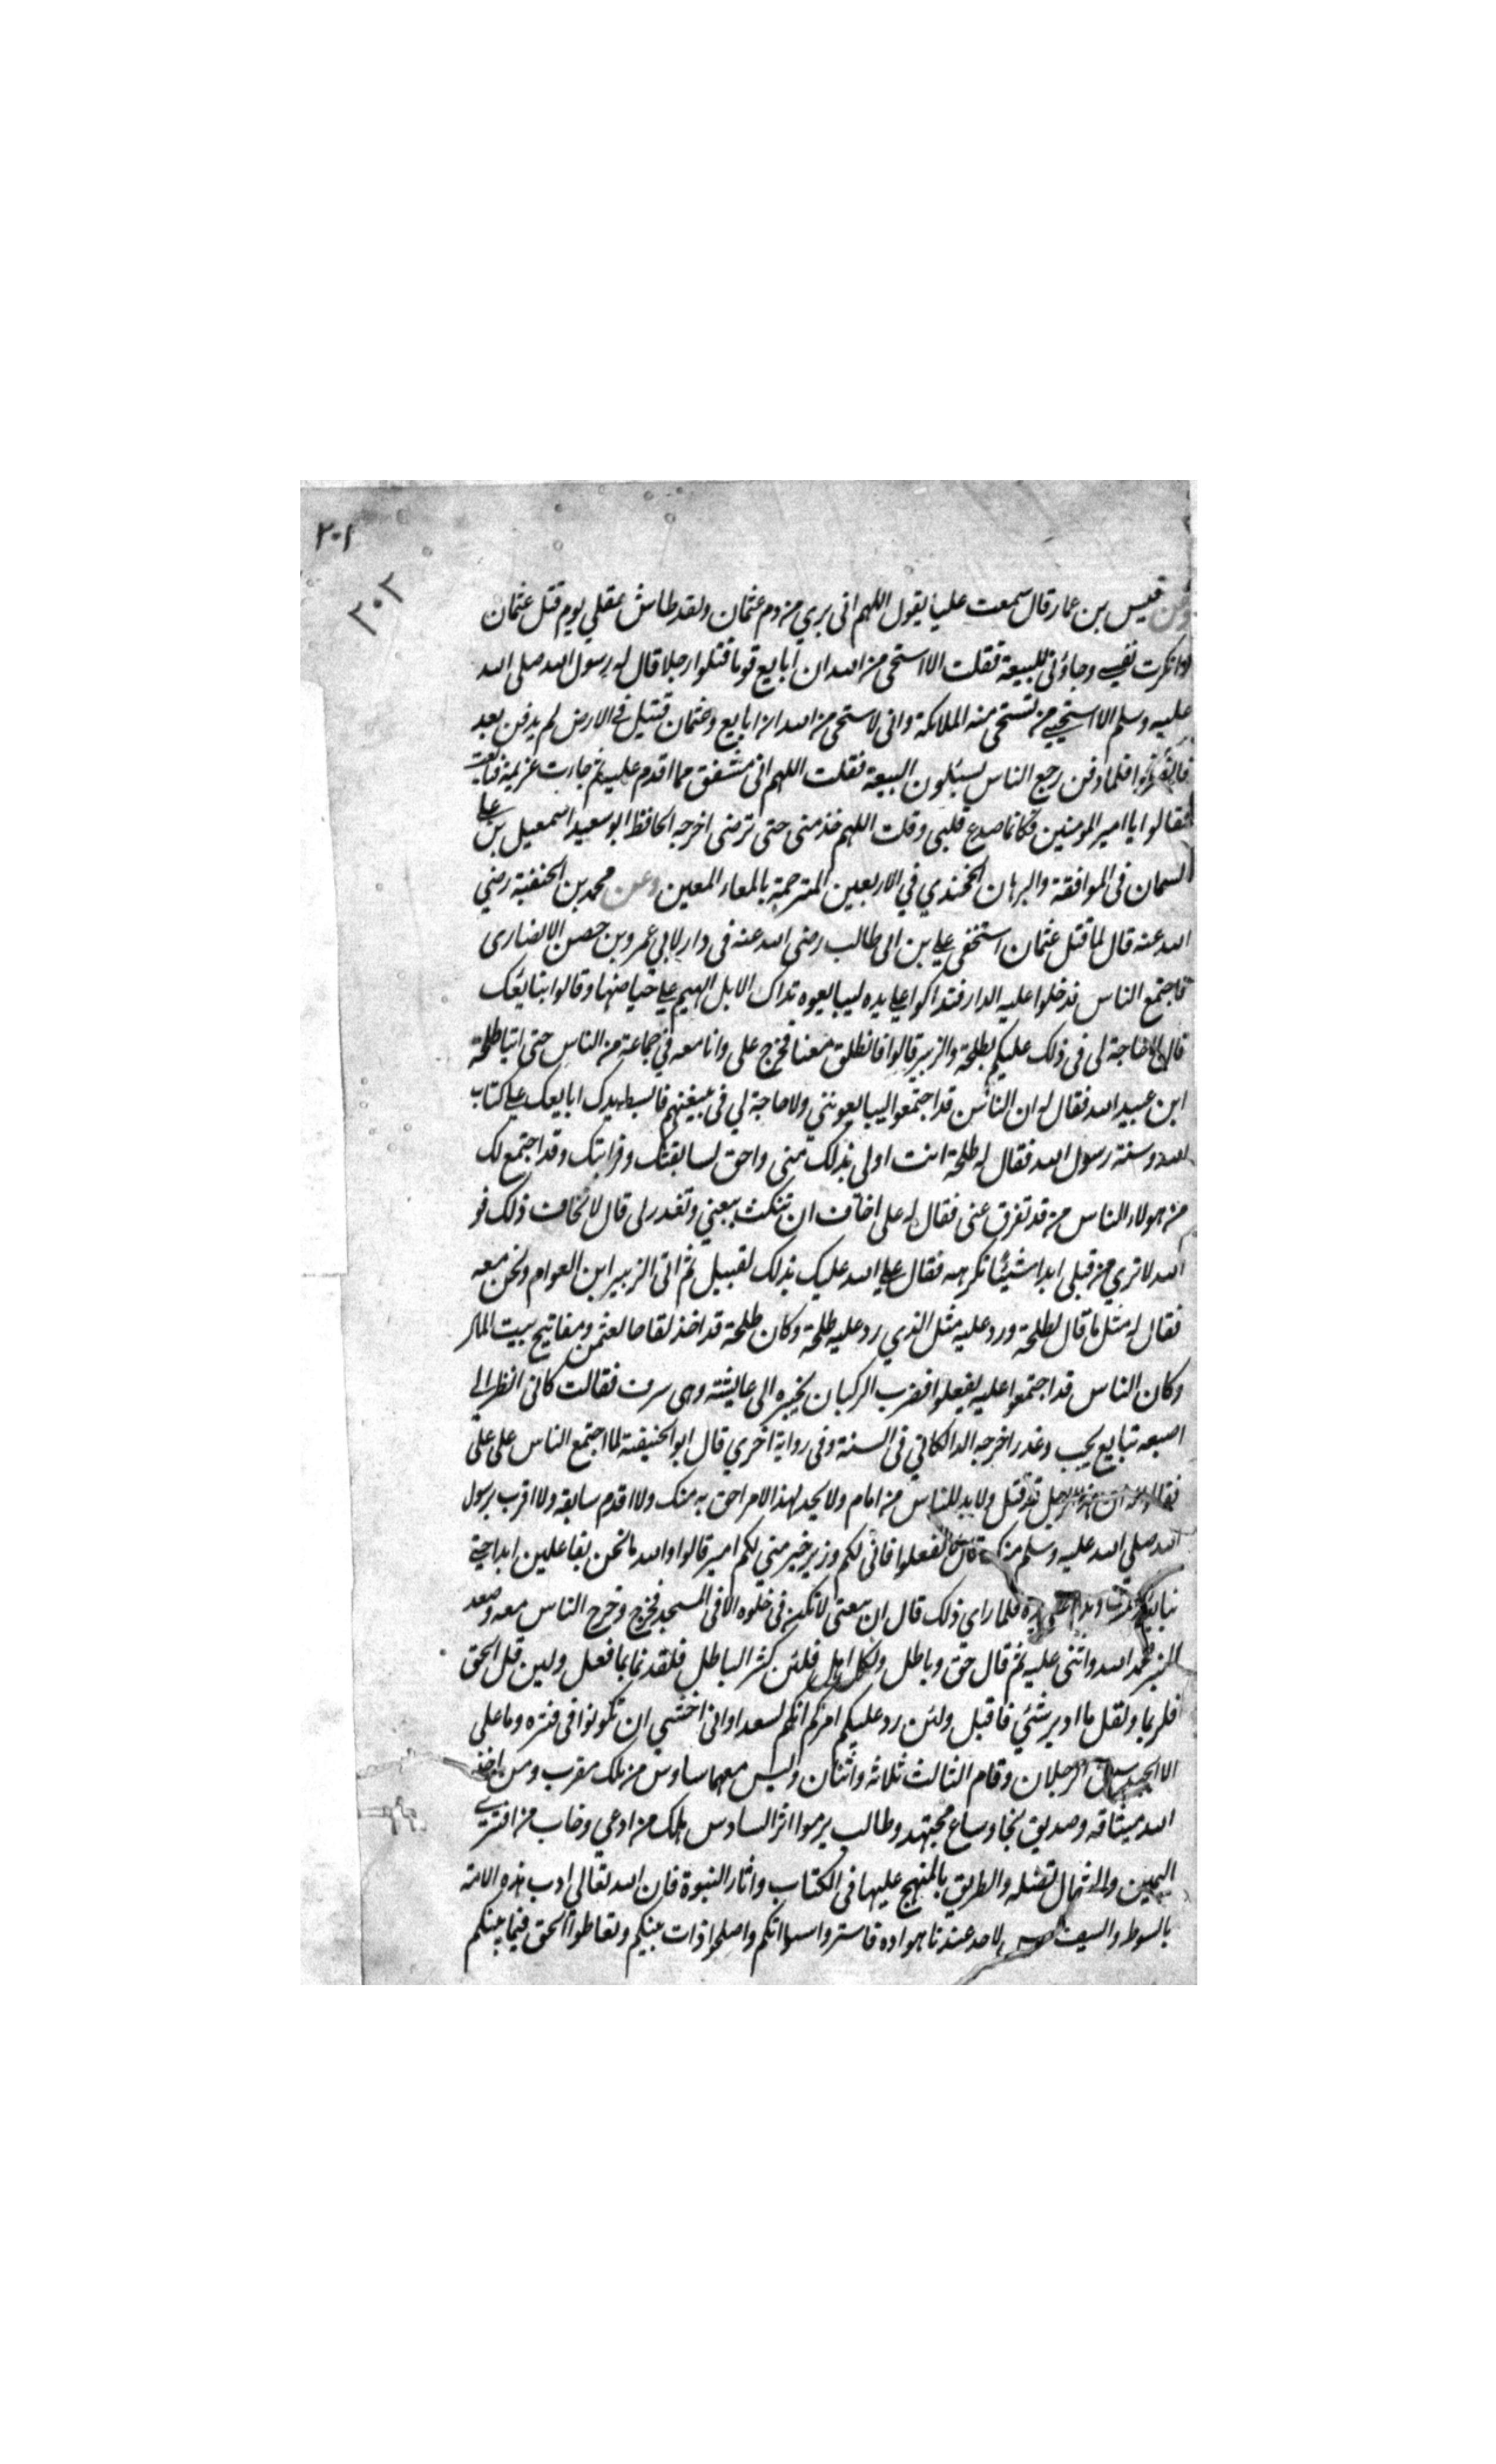 ٢٠١
٢٠٢
وعن قيس بن عمار قال سمعت عليا يقول اللهم انى بري من دم عثمان ولقد طاش عقلي يوم قتل عثمان
وانكرت نفسي وجاؤنى للبيعة فقلت الا استحى من الله ان ابايع قوما قتلوا رجلا قال له رسول الله صلى الله
عليه وسلم الا استحيي من تستحى منه الملائكة وانى لاستحى من الله ان ابايع وعثمان قتيل فى الارض لم يدفن بعد
فلما دفن رجع الناس يسئلون البيعة فقلت اللهم انى مشفق مما اقدم عليه ثم جاءت عزيمة فبايعت
فقالوا يا امير المومنين فكانما صدع قلبى وقلت اللهم خذ منى حتى ترضى اخرجه الحافظ ابو سعيد اسمعيل بن على
السمان فى الموافقة والبرهان الخجندي في الاربعين المترجمة بالماء المعين وعن محمد بن الحنفية رضي
الله عنه قال لما قتل عثمان استخفى علي بن ابى طالب رضى الله عنه فى دار لابي عمرو بن حصن الانصارى
فاجتمع الناس فدخلوا عليه الدار فتداكوا على يده ليبايعوه تداك الابل الهيم على حياضها وقالوا بنايعك
قال لا حاجة لى فى ذلك عليكم بطلحة والزبير قالوا فانطلق معنا فخرج على وانا معه في جماعة من الناس حتى اتينا طلحة
ابن عبيد الله فقال له ان الناس قد اجتمعوا ليبايعونني ولا حاجة لي فى بيعتهم فابسط يدك ابايعك على كتاب
الله وسنة رسول الله فقال له طلحة انت اولى بذلك منى واحق لسابقتك وقرابتك وقد اجتمع لك
من هولاء الناس من قد تفرق عنى فقال له على اخاف ان تنكث بيعتي وتغدر لى قال لا تخاف ذلك فو
الله لا تري من قبلى ابدا شيئا تكرهه فقال على الله عليك بذلك لقبيل ثم اتى الزبير ابن العوام ونحن معه
فقال له مثل ما قال لطلحة ورد عليه مثل الذي رد عليه طلحة وكان طلحة قد اخذ لقاحا لعثمن ومفاتيح بيت المال
وكان الناس قد اجتمعوا عليه يفعلوا فضرب الركبان بخبره الى عايشة وهى سرف فقالت كانى انظر الى
اصبعه تبايع بخب وغدر اخرجه الدالكاتي فى السنة وفى رواية اخري قال ابو الحنيفة لما اجتمع الناس على على
فقالوا له ان هذا الرجل قد قتل ولابد للناس من امام ولا نجد لهذا الامر احق به منك ولا اقدم سابقة ولا اقرب برسول
الله صلى الله عليه وسلم منك قال لا تفعلوا فانى لكم وزير خير مني لكم امير قالوا والله ما نحن بفاعلين ابدا حتى
نبايعك فلما راي ذلك قال ان بيعتى لا تكن فى خلوه الا فى المسجد فخرج وخرج الناس معه وصعد
المنبر فحمد الله واثنى عليه ثم قال حق وباطل ولكل اهل فلئن كثر الباطل فلقد نما بما فعل ولين قل الحق
فلربما ولقل ما ادبر شئي فاقبل ولئن رد عليكم امركم انكم لسعدا وانى اخشى ان تكونوا فى فتره وما على
الا الجهد سبق الرجلان وقام الثالث ثلاثة واثنان وليس معهما سادس من ملك مقرب ومن اخذ
الله ميثاقه وصديق نجا وساع مجتهد وطالب يرموا اثر السادس هلك من ادعي وخاب من افترى
اليمين والشمال لقتله والطريق بالمنهج عليها فى الكتاب واثار النبوة فان الله تعالى ادب هذه الامة
بالسوط والسيف لاحد عندنا هواده فاستروا سواتكم واصلحوا ذات بينكم وتعاطوا الحق فيما بينكم